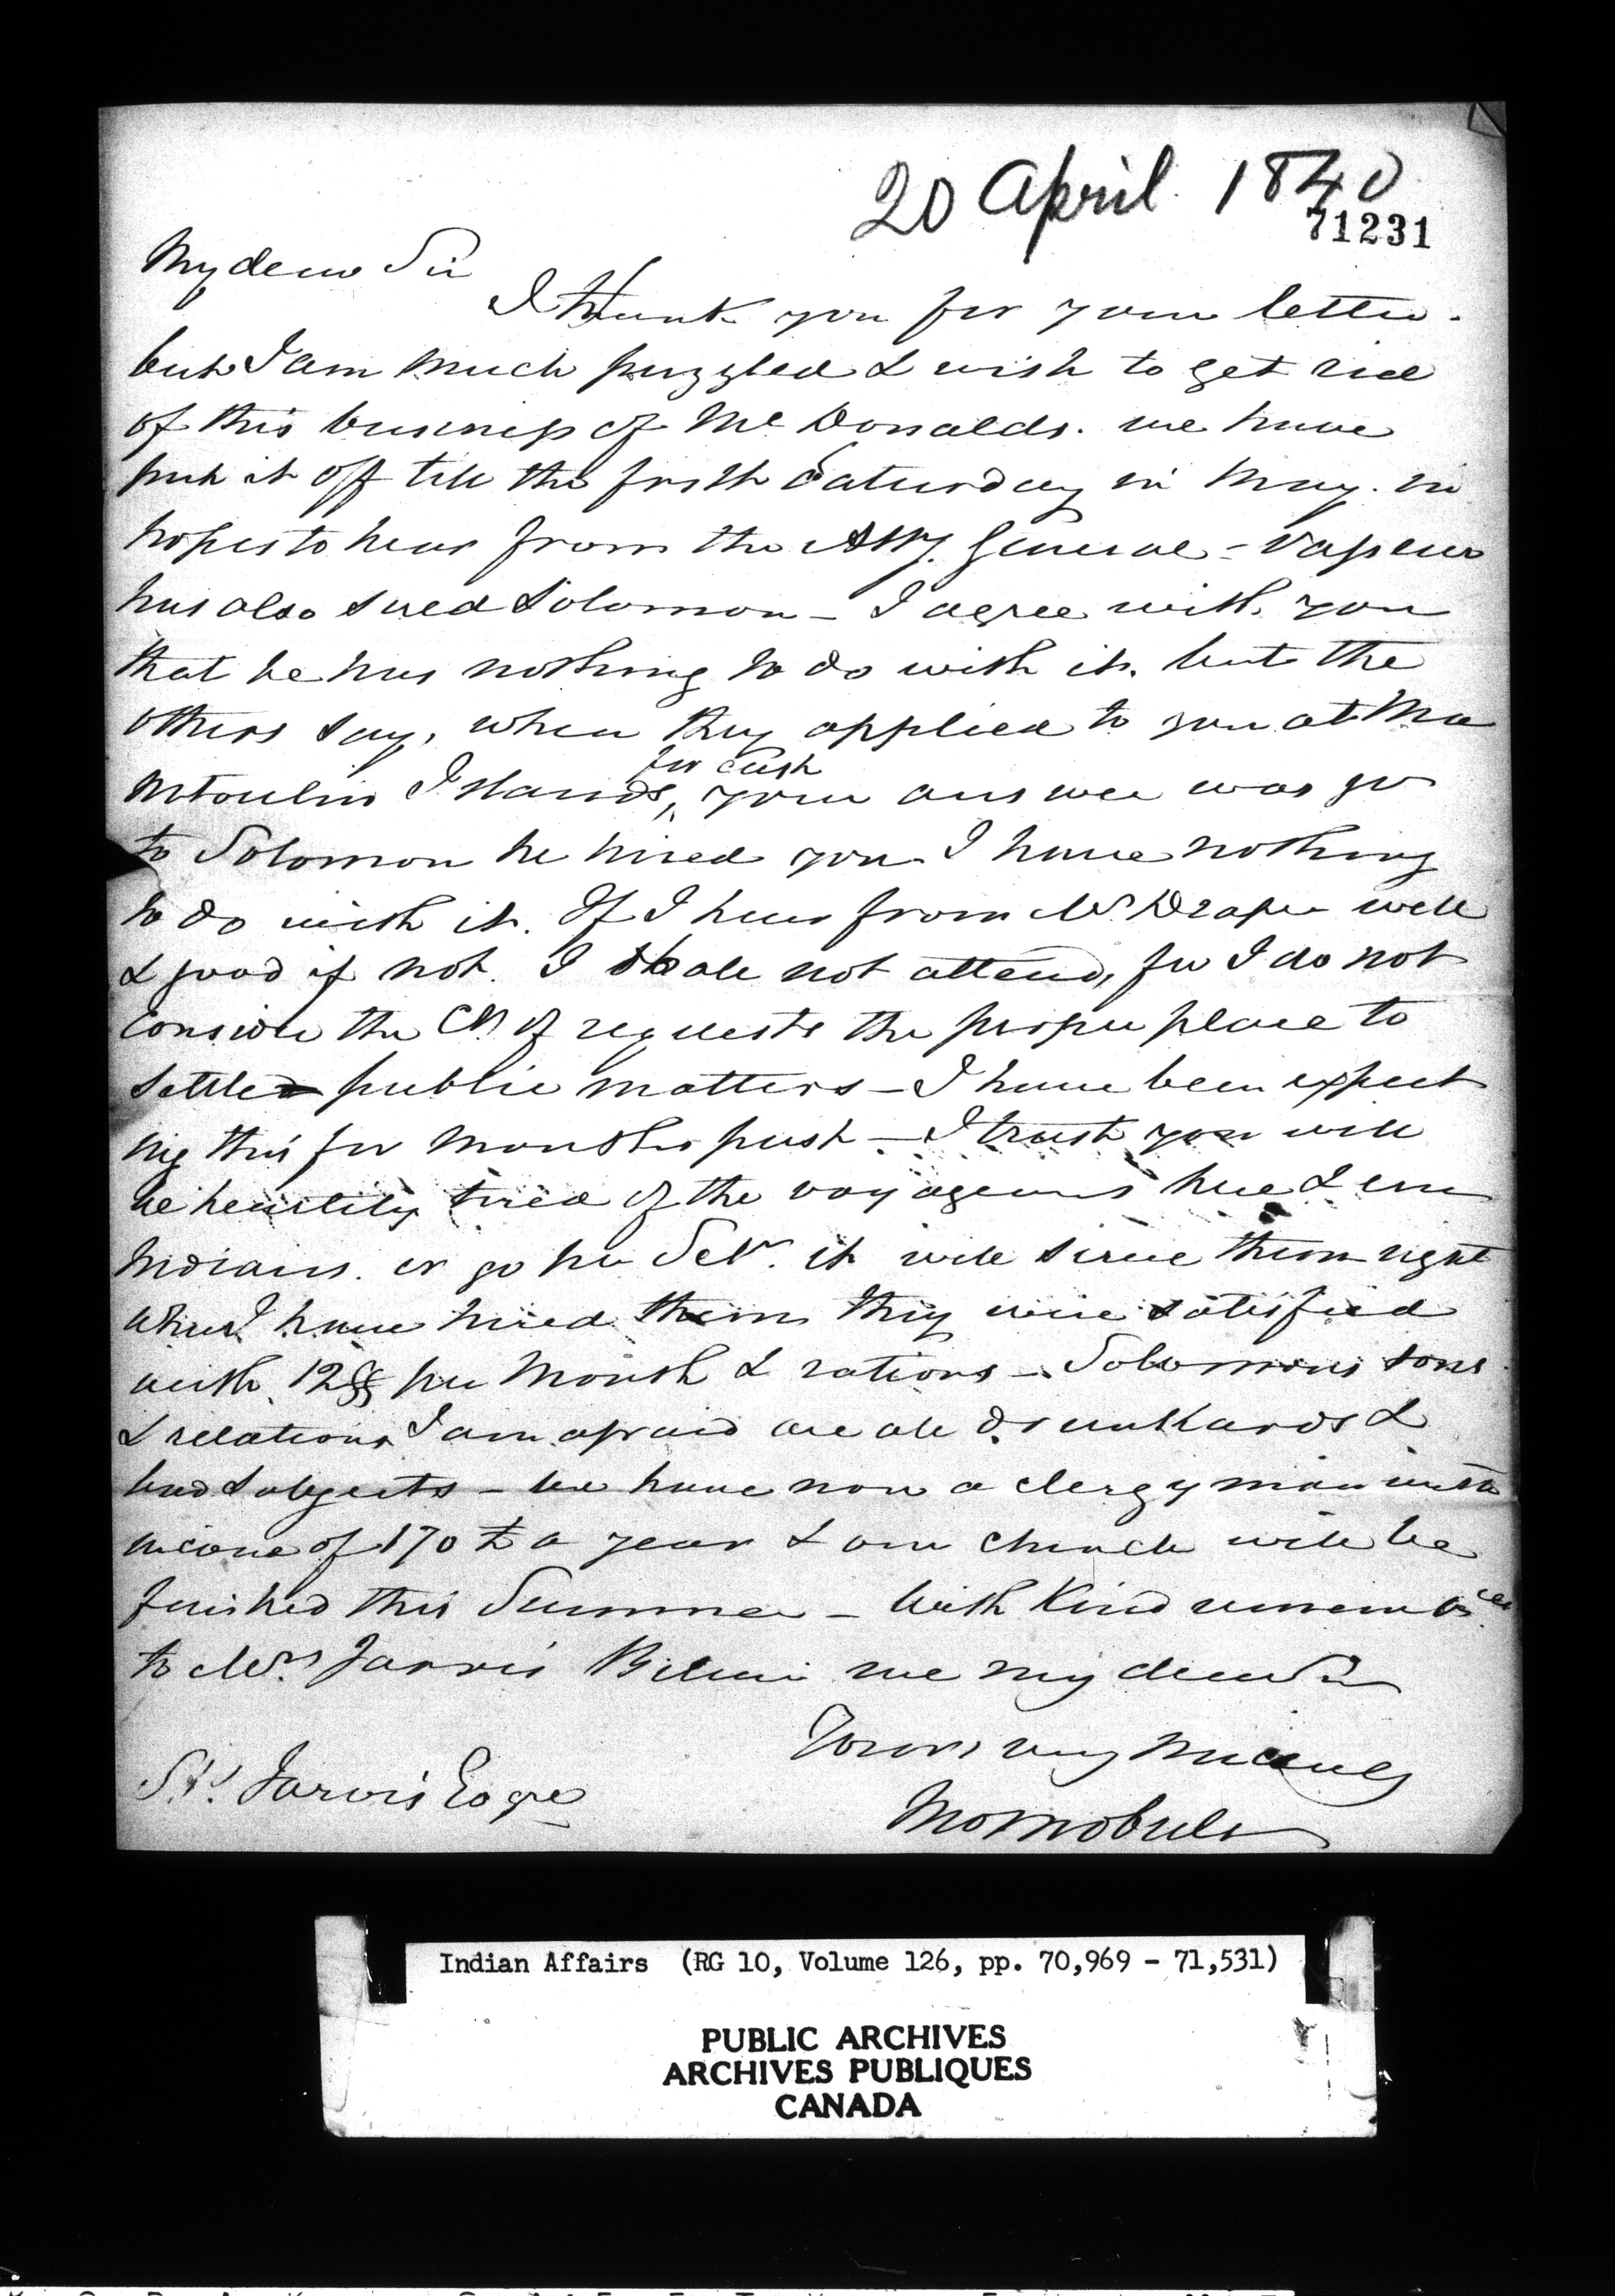 20 April 1840
71231
My dear Sir
I thank you for your letter.
but I am much puzzled & wish to get rid
of this business of McDonalds. we have
put it off till the first Saturday in May. in
hopes to hear from the Atty. General - Vasseur
has also sued Solomon - I agree with you
that he has nothing to do with it. but the
others say, when they applied to you at Ma
nitoulin Islands, for cash your answer was go
to Solomon he hired you I have nothing
to do with it. If I hear from Mr. Draper well
& good if not. I shall not attend, for I do not
consider the Ct. of requests the proper place to
settle public matters - I have been expect
ing this for months past - I trust you will
be heartily tired of the voyageurs here & em
Indians. or go per Schr. it will serve them right
when I have hired them they were satisfied
with 12$ per Month & rations - Solomons sons
& relations I am afraid are all drunkards &
bad subjects - we have now a clergyman with
income of 170 £ a year & our church will be
finished this Summer - with Kind remembces
to Mrs. Jarvis Believe me my dear Sir
Yours very sincerely
St. Jarvis Esqre
Indian Affairs (RG 10, Volume 126, pp. 70,969 - 71,531)
PUBLIC ARCHIVES
ARCHIVES PUBLIQUES
CANADA